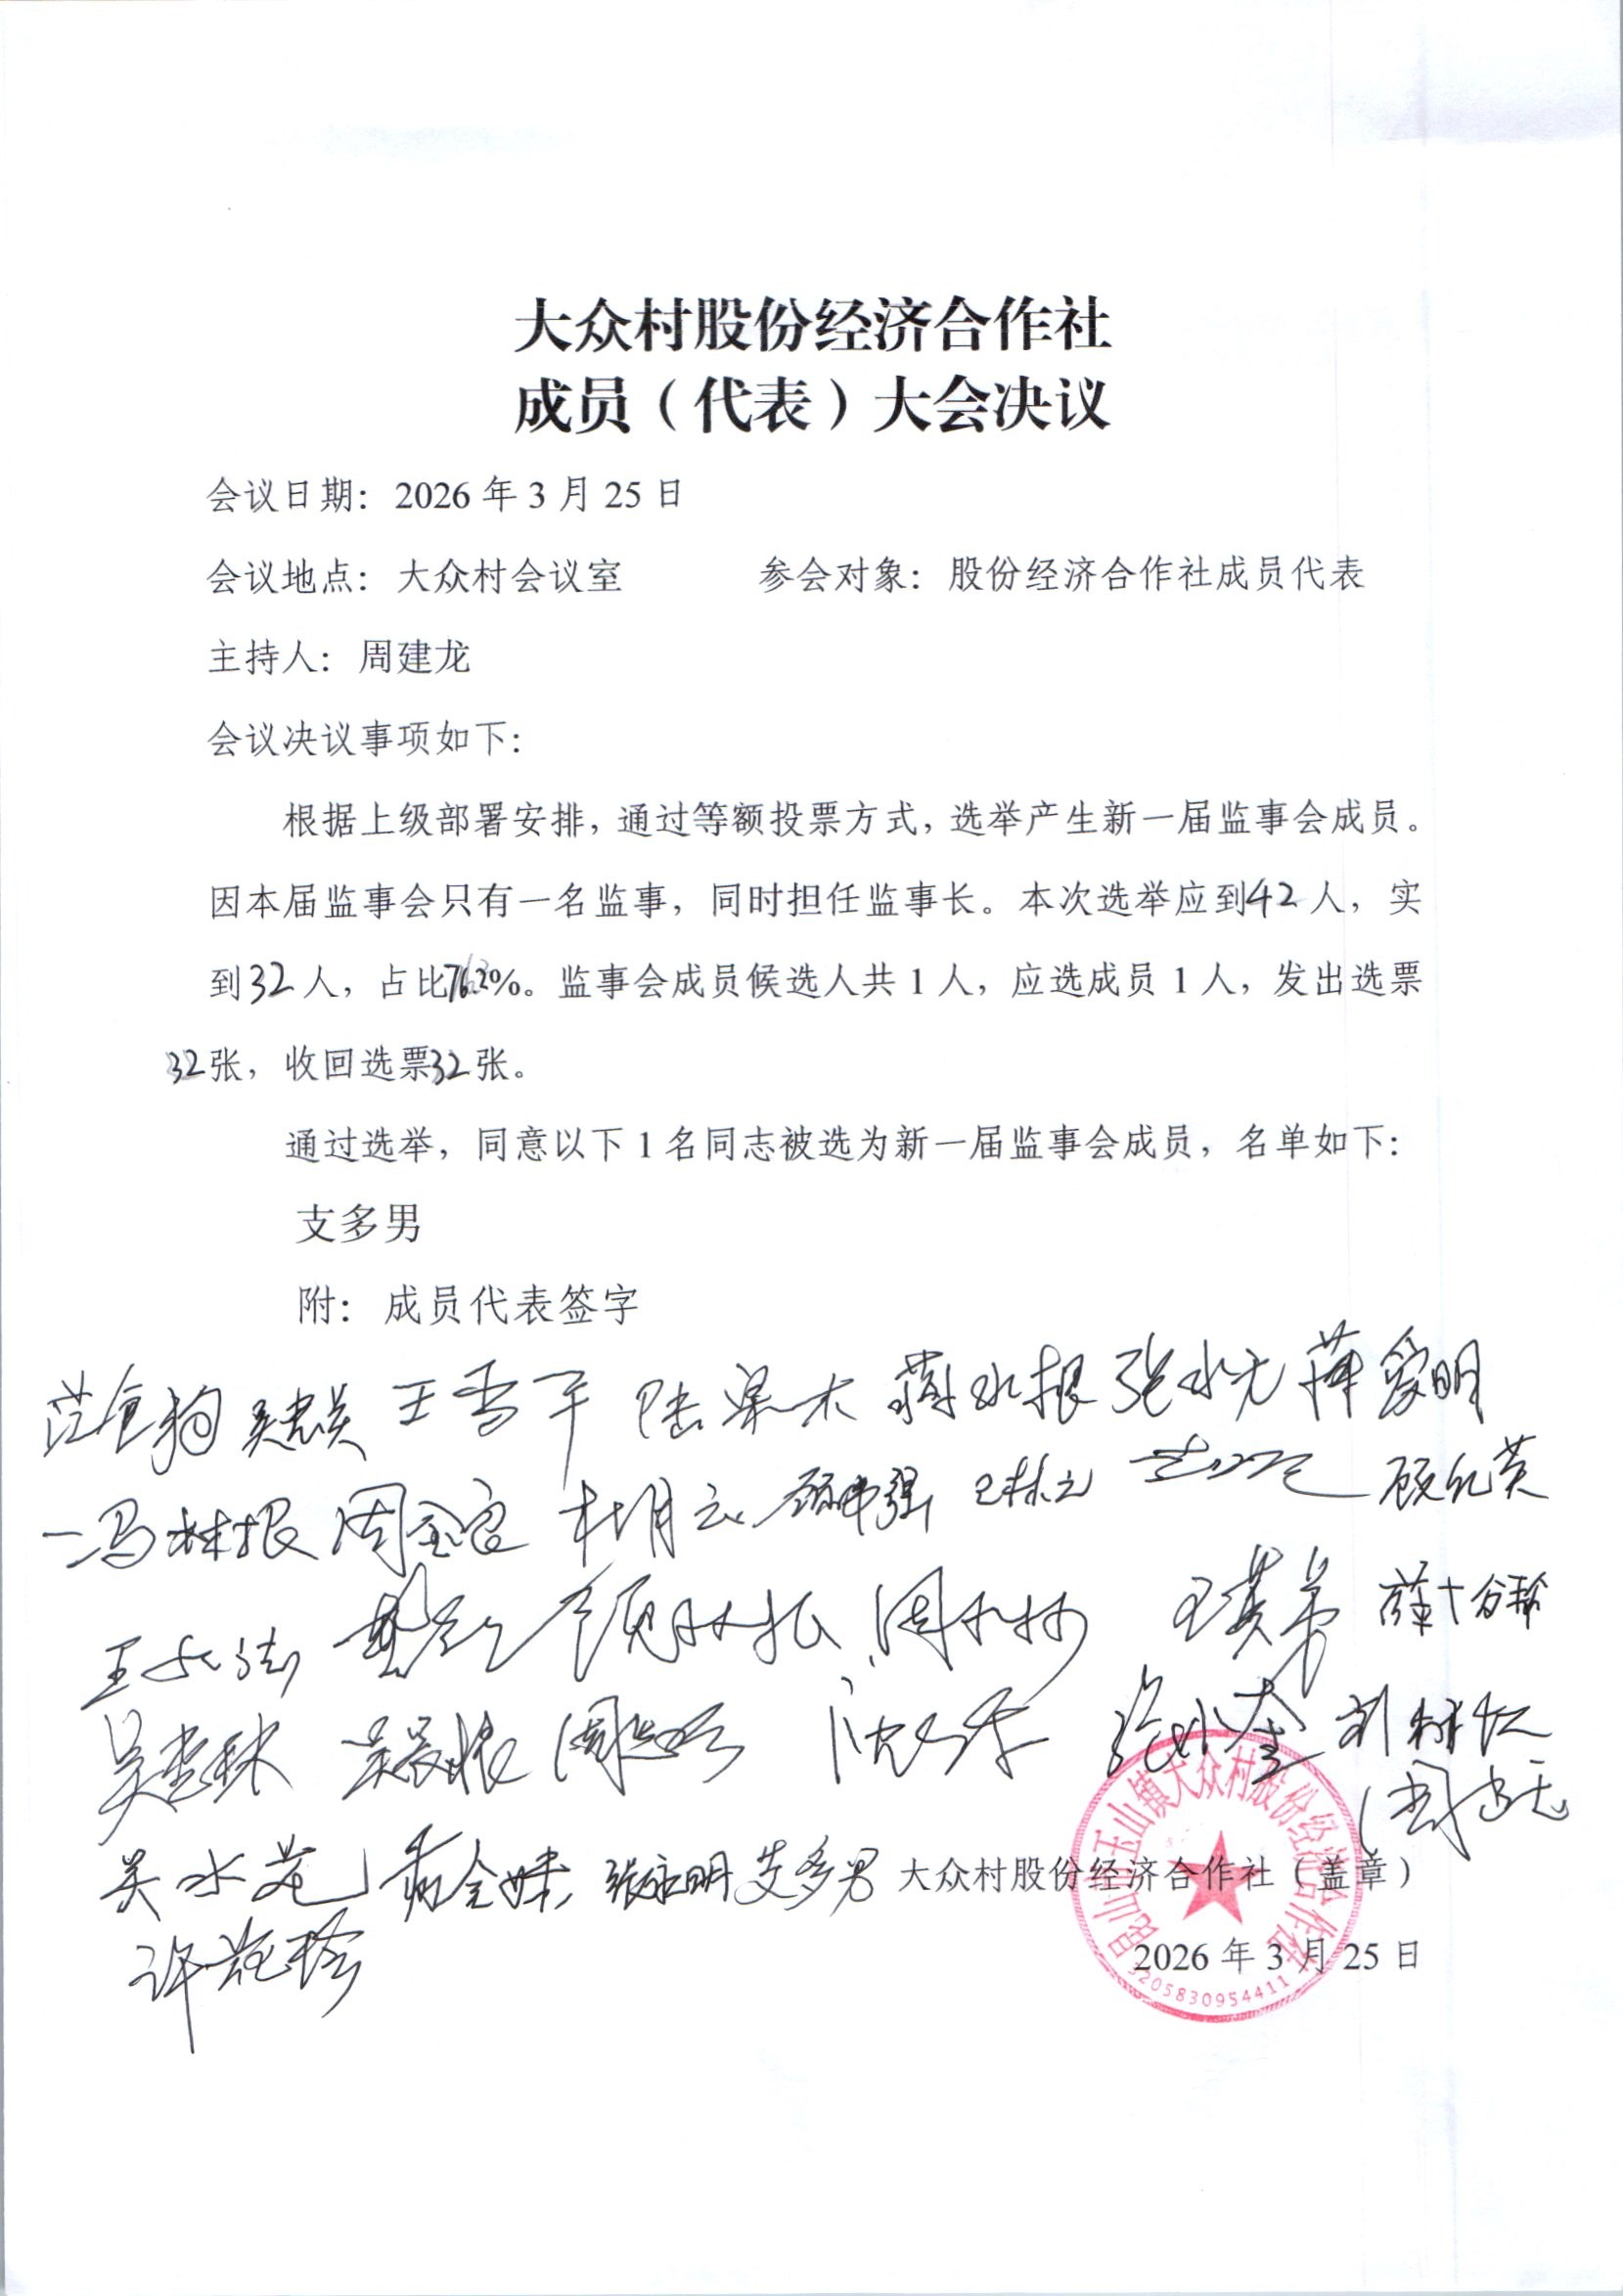 大众村股份经济合作社
成员（代表）大会决议
会议日期：2026 年 3 月 25 日
会议地点：大众村会议室 参会对象：股份经济合作社成员代表
主持人：周建龙
会议决议事项如下：
根据上级部署安排，通过等额投票方式，选举产生新一届监事会成员。
因本届监事会只有一名监事，同时担任监事长。本次选举应到42人，实
到32人，占比76.2%。监事会成员候选人共 1 人，应选成员 1 人，发出选票
32张，收回选票32张。
通过选举，同意以下 1 名同志被选为新一届监事会成员，名单如下：
支多男
附：成员代表签字
王雪平 蒋水根 张水元 薛爱明
冯林根 杜明云 王林元 顾纪英
吴水花 张永明 支多男 大众村股份经济合作社（盖章）
许花珍
2026 年 3 月 25 日
昆山市玉山镇大众村股份经济合作社
3205830954411